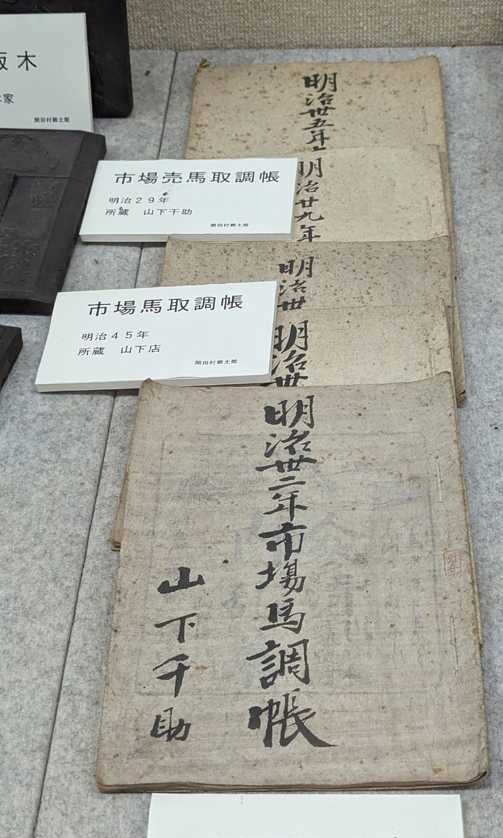 版木
家
開田村郷土館
市場売馬取調帳
明治29年
所蔵 山下千助
開田村郷土館
市場馬取調帳
明治45年
所蔵 山下店
開田村郷土館
明治卅五年
明治廿九年
明治卅
明治卅
明治卅二年市場馬調帳
山下千助